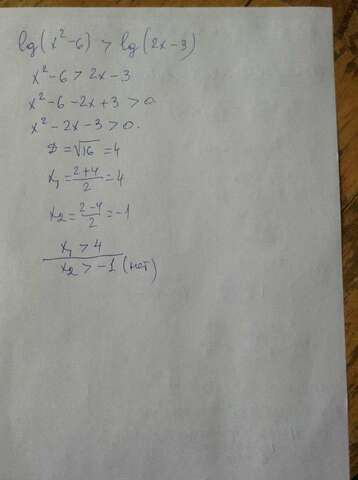 lg(x²-6) > lg(2x-3)
x²-6 > 2x-3
x²-6-2x+3 > 0
x²-2x-3 > 0.
D = √16 = 4
x₁ = (2+4)/2 = 4
x₂ = (2-4)/2 = -1
x₁ > 4
x₂ > -1 (нет)